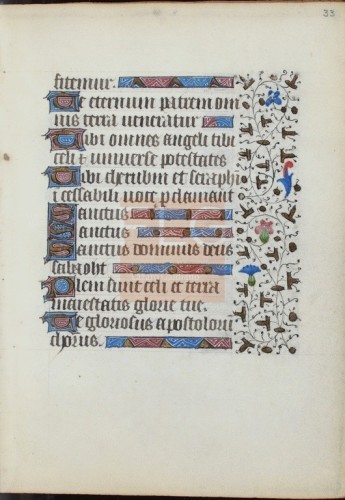 33
fitemur.
Te eternum patrem om
nis terra veneratur
Tibi omnes angeli tibi
celi ⁊ universe potestates
Tibi cherubin et seraphi
i cessabili voce proclamant
Sanctus
Sanctus
Sanctus dominus deus
sabaoth
Pleni sunt celi et terra
maiestatis glorie tue.
Te gloriosus apostoloru
chorus.